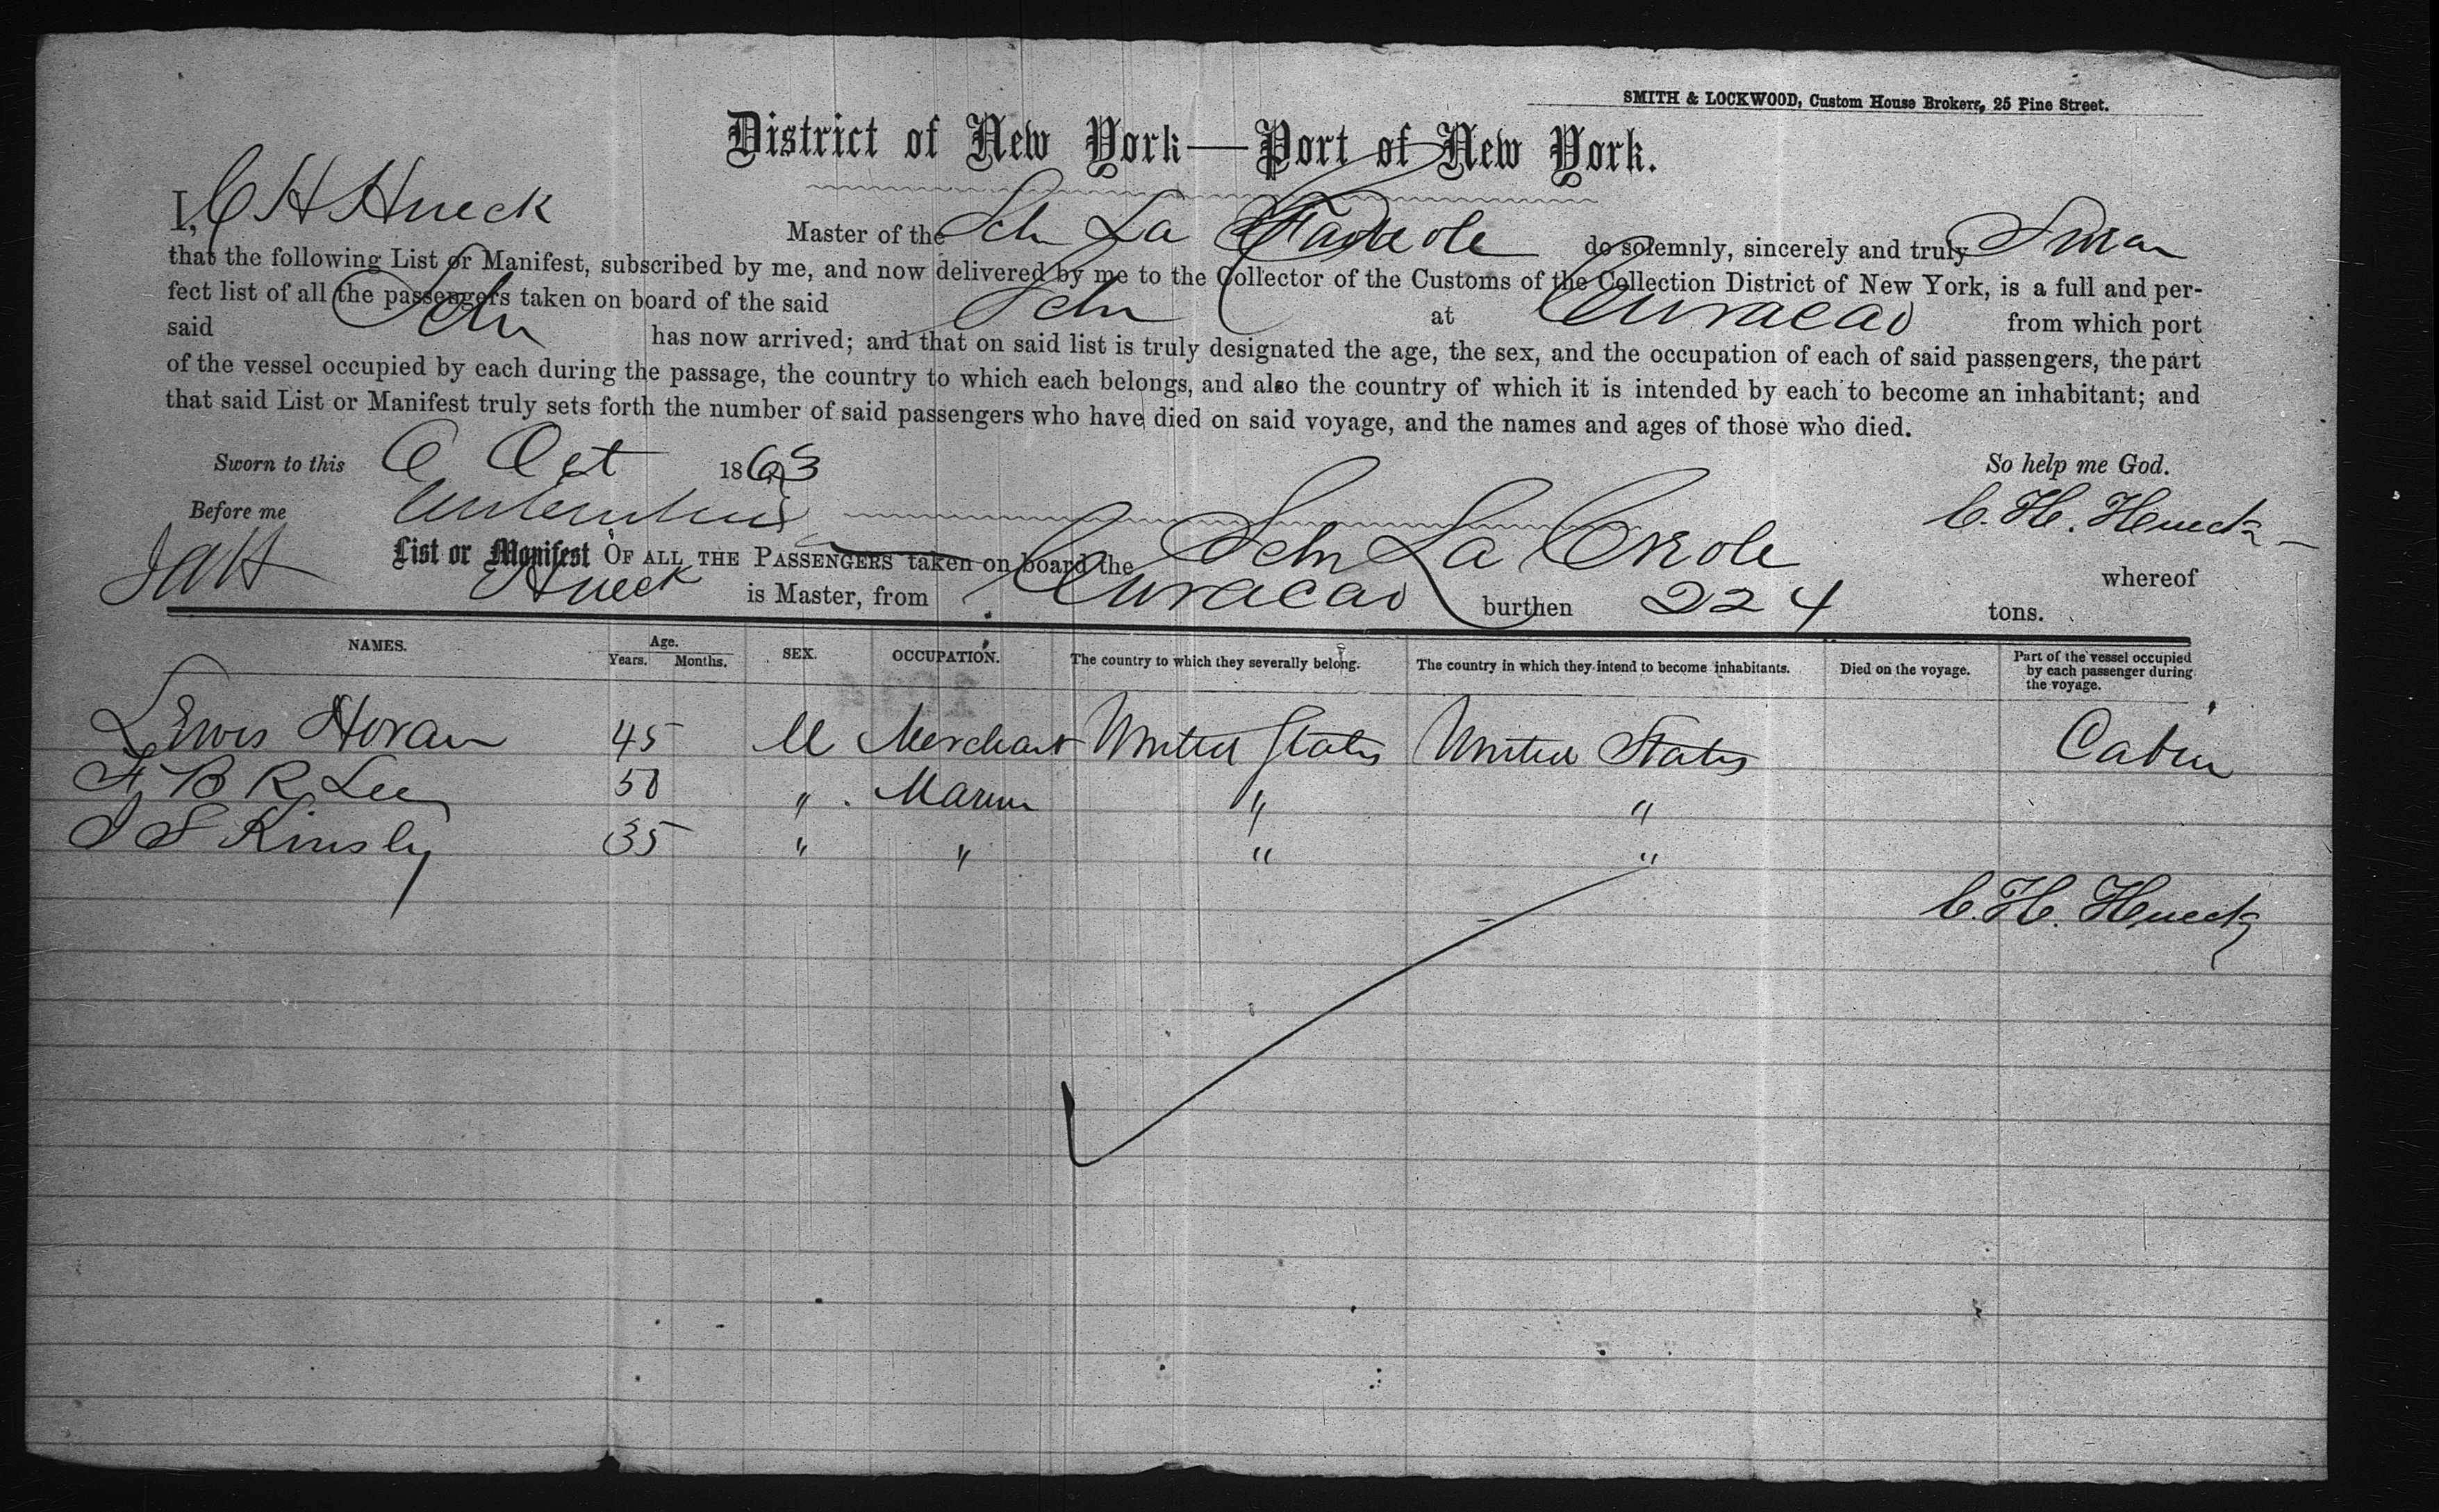 SMITH & LOCKWOOD, Custom House Brokers, 25 Pine Street.
District of New York—Port of New York.
I, C H Hueck Master of the Schr La do solemnly, sincerely and truly Swear
that the following List or Manifest, subscribed by me, and now delivered by me to the Collector of the Customs of the Collection District of New York, is a full and per-
fect list of all the passengers taken on board of the said Schr at Curacao from which port
said Schr has now arrived; and that on said list is truly designated the age, the sex, and the occupation of each of said passengers, the part
of the vessel occupied by each during the passage, the country to which each belongs, and also the country of which it is intended by each to become an inhabitant; and
that said List or Manifest truly sets forth the number of said passengers who have died on said voyage, and the names and ages of those who died.
Sworn to this 6 Oct 1863 So help me God.
Before me C. H. Hueck
List or Manifest OF ALL THE PASSENGERS taken on board the Schr La Creole whereof
Hueck is Master, from Curacao burthen 224 tons.
NAMES. Age. Years. Months. SEX. OCCUPATION. The country to which they severally belong. The country in which they intend to become inhabitants. Died on the voyage. Part of the vessel occupied by each passenger during the voyage.
Lewis Horan 45 M Merchant United States United States Cabin
F B R Lee 50 " Marine " "
J S Kinsly 35 " " " "
C. H. Hueck